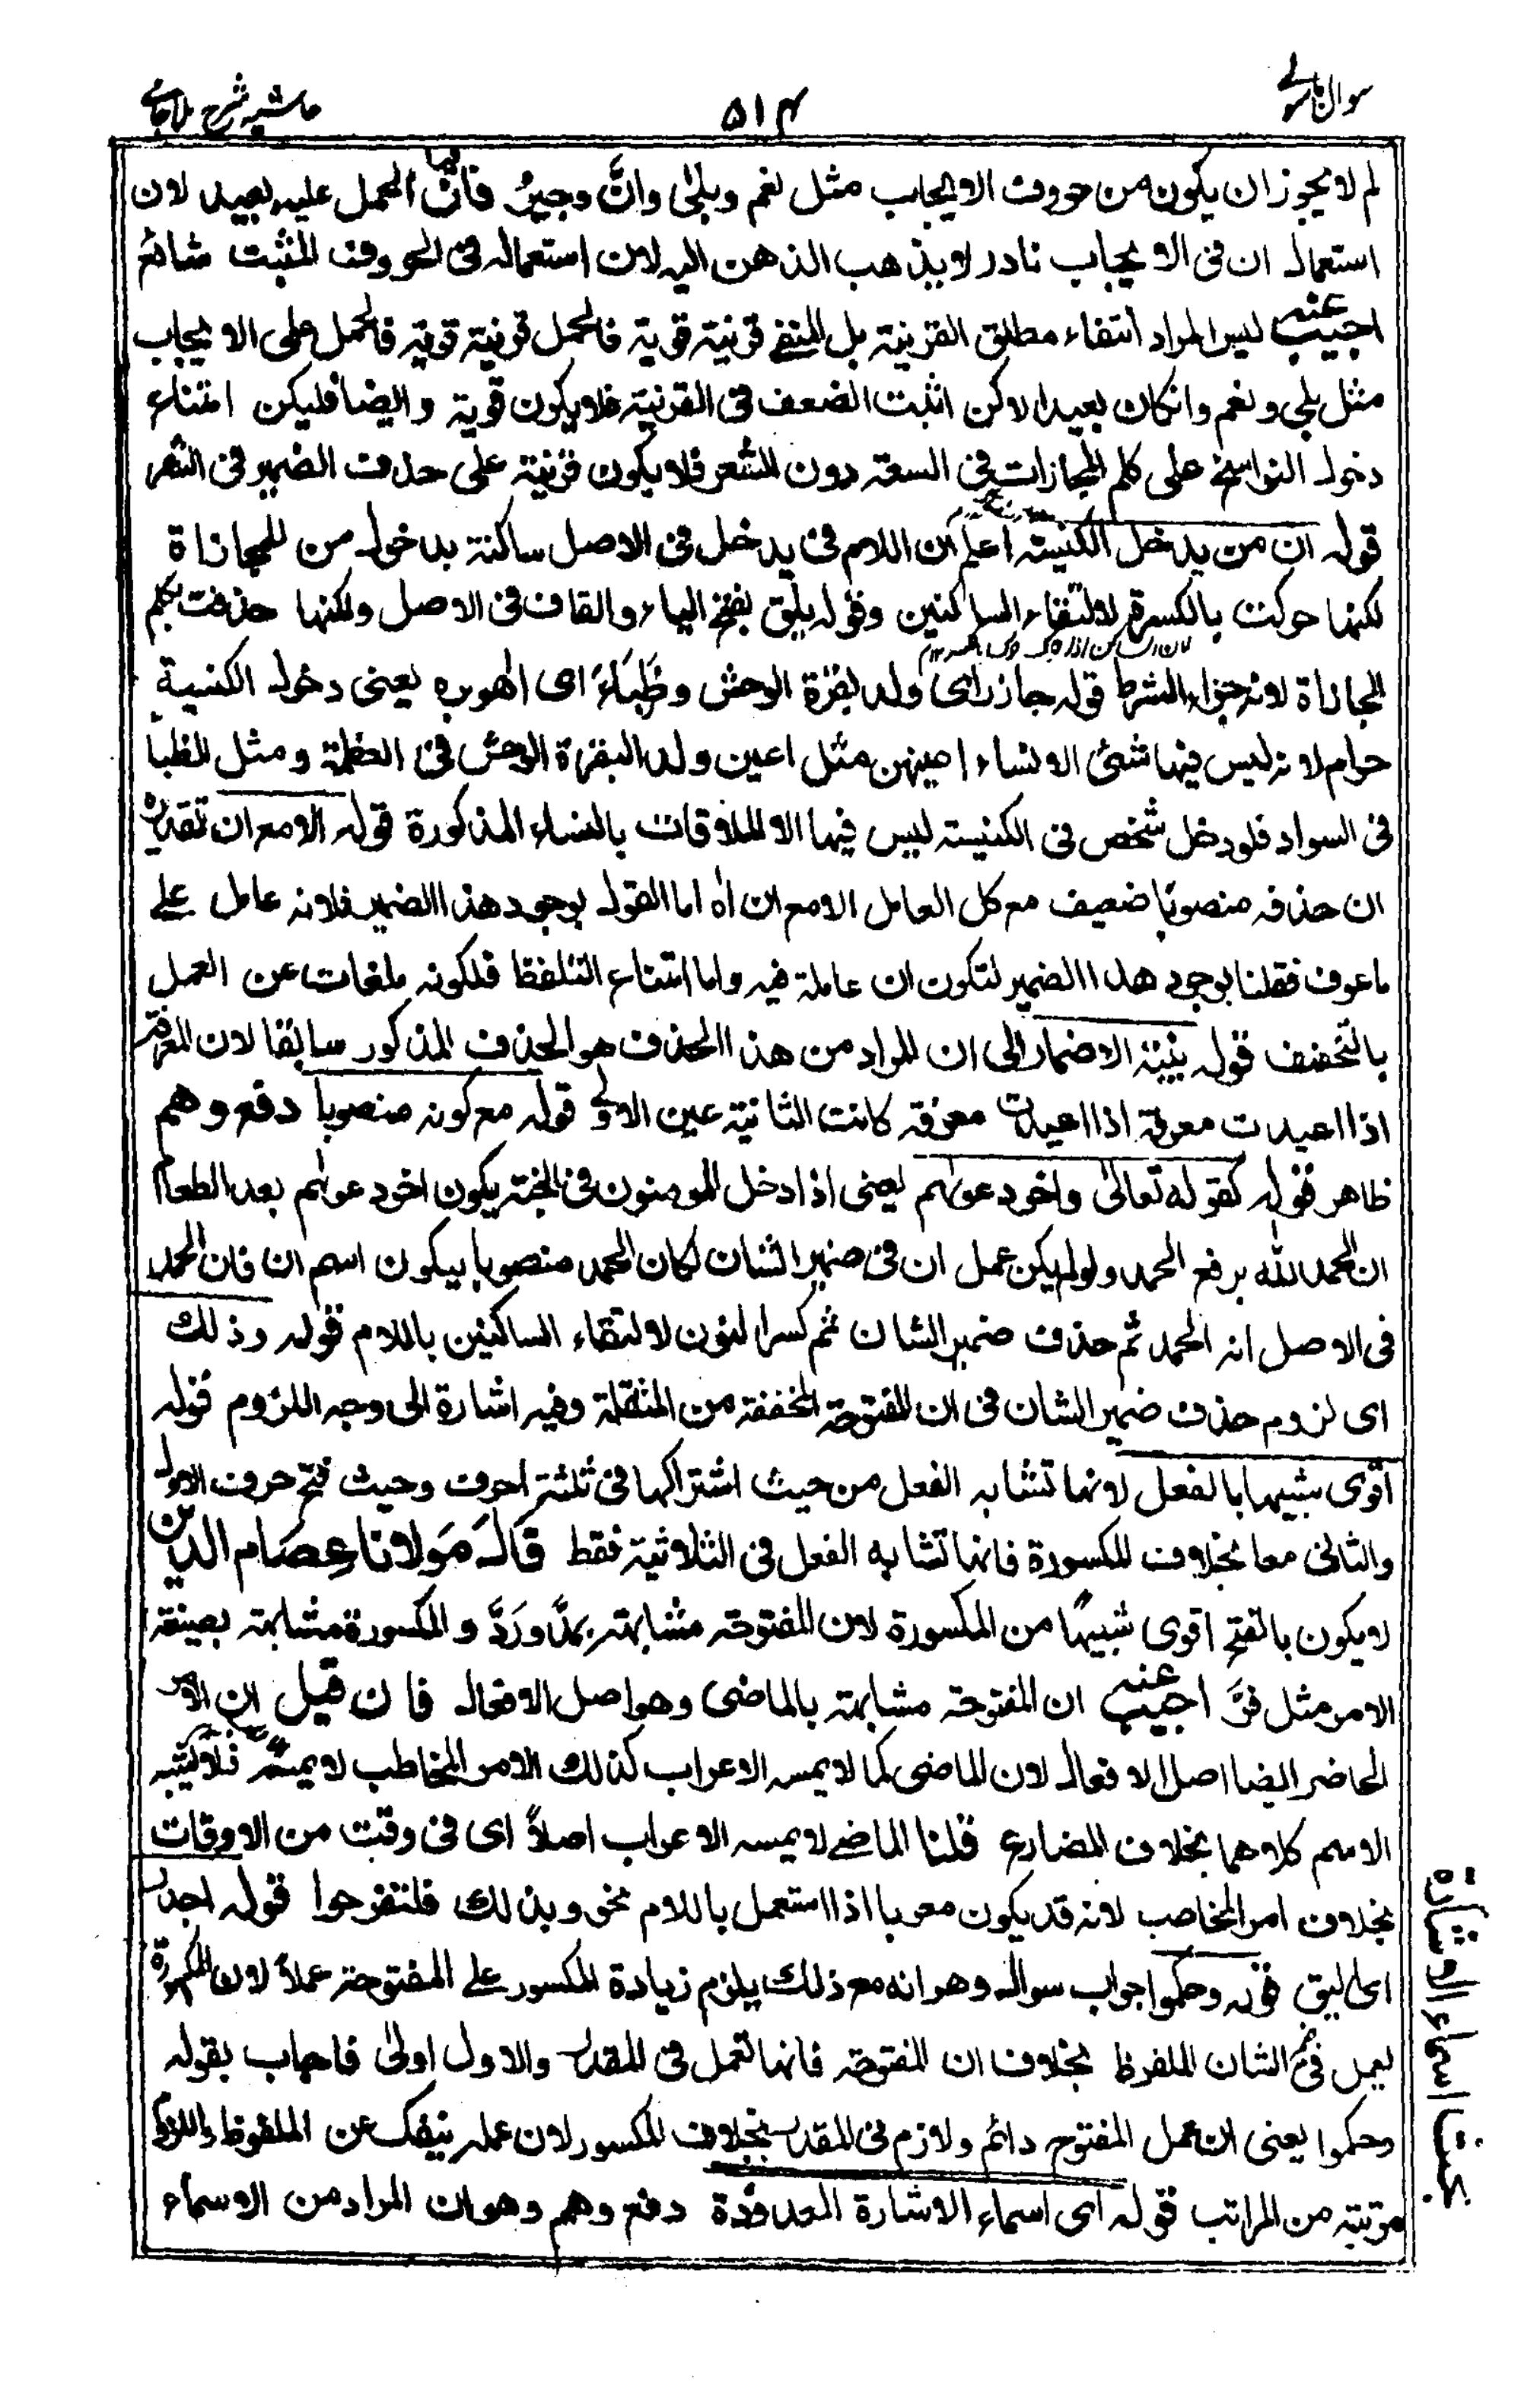 سوال باسولے
۵۱۴
حاشیہ شرح ملا جامے
لم لا يجوز ان يكون من حروف الايجاب مثل نعم وبلىٰ وانَّ وجيرُ فانّ الحمل عليه بعيد لان
استعمال ان فى الايجاب نادر لا يذهب الذهن اليه لان استعماله فى الحروف المثبت شائع
اجيب عنه ليس المراد انتفاء مطلق القرينة بل المنفے قرينة قوية فالحمل قرينة قوية فالحمل على الايجاب
مثل بلى ونعم وانكان بعيدا لاكن اثبت الضعف فى القرنية فلا يكون قوية وايضا فليكن امتناع
دخول النواسخ على كلم المجازات فى السعة دون الشعر فلا يكون قرنية على حذف الضمير فى الشعر
قوله ان من يدخل الكنيسة اعلم ان اللام فى يدخل فى الاصل ساكنة بدخول من للمجازاة
لكنها حركت بالكسرة لالتقاء الساكنين وقوله يلق بفتح الياء والقاف فى الاصل ولكنها حذفت بكلم
لان الساكن اذا حرك حرك بالكسر ۱۲م
المجازاة لانه جزاء الشرط قوله جاذر اى ولد بقرة الوحش وظِبَاءً اى اهوبره يعنى دخول الكنيسة
حرام لانه ليس فيها شئ الا نساء اعينهن مثل اعين ولد البقرة الوحش فى العظمة ومثل الظبأ
فى السواد فلو دخل شخص فى الكنيسته ليس فيها الا الملاقات بالنساء المذكورة قوله الا مع ان تقديره
ان حذفه منصوبًا ضعيف مع كل العامل الا مع ان اه اما القول بوجود هذا الضمير فلانه عامل علے
ما عرف فقلنا بوجود هذا الضمير لتكون ان عاملة فيه واما امتناع التلفظ فلكونه ملغات عن العمل
بالتخفف قوله بنيّة الاضمار الى ان المراد من هذا الحذف هو الحذف المذكور سابقا لان المعرفة
اذا اعيدت معرفة اذا اعيدت معرفة كانت الثانية عين الاولٰے قوله مع كونه منصوبا دفع وهم
ظاهر قوله كقوله تعالىٰ واخر دعوٰىهم يعنى اذا دخل المومنون فى الجنة يكون اخر دعوٰىهم بعد الطعام
ان الحمد لله برفع الحمد ولو لم يكن عمل ان فى ضمير الشان لكان الحمد منصوبا بيكون اسم ان فان الحمد
فى الاصل انه الحمد ثم حذف ضمير الشان ثم كسر النون لالتقاء الساكنين باللام قوله وذلك
اى لزوم حذف ضمير الشان فى ان المفتوحة المخففة من المثقلة وفيه اشارة الى وجه اللزوم قوله
اقوى شبيها بالفعل لانها تشابه الفعل من حيث اشتراكها فى ثلثة احرف وحيث فتح حرف الاول
والثانى معا بخلاف المكسورة فانها تشابه الفعل فى الثلاثية فقط قَالَ مَولانا عِصَام الدين
لا يكون بالفتح اقوى شبيهًا من المكسورة لان المفتوحة مشابهة بمدَّ وردَّ والمكسورة مشابهة بصيغة
الامر مثل فِرَّ اجيب عنه ان المفتوحة مشابهة بالماضى وهو اصل الافعال فان قيل ان الامر
الحاضر ايضا اصل الافعال لان الماضى كما لا يمسه الاعراب كذلك الامر المخاطب لا يمسه فلا يشبه
الاسم كلاهما بخلاف المضارع قلنا الماضے لا يمسه الاعراب اصلاً اى فى وقت من الاوقات
بخلاف امر المخاصب لانه قد يكون معربا اذا استعمل باللام نحو وبذلك فلتفرحوا قوله اجدر
اى اليق قوله وحكموا جواب سوال وهو انه مع ذلك يلزم زيادة المكسور علے المفتوحة عملاً لان المكسورة
يعمل فى الشان الملفوظ بخلاف ان المفتوحة فانها تعمل فى المقدر والاول اولىٰ فاجاب بقوله
وحكموا يعنى ان عمل المفتوح دائم ولازم فى المقدر بخلاف المكسور لان عمله ينفك عن الملفوظ واللازم
مرتبة من المراتب قوله اى اسماء الاشارة المعدودة دفع وهم وهو ان المراد من الاسماء
بحث اسماء الاشارة